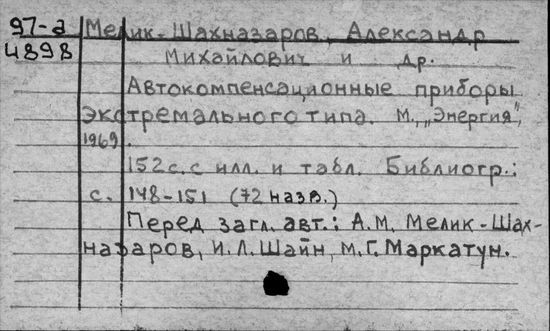 97-а Мелик-Шахназаров, Александр
4898 Михайлович и др.
Автокомпенсационные приборы
экстремального типа. М., „Энергия",
1969.
152с. с илл. и табл. Библиогр.:
с. 148-151 (72 назв.)
Перед загл. авт.: А.М. Мелик-Шах-
назаров, И.Л. Шайн, М.Г. Маркатун.